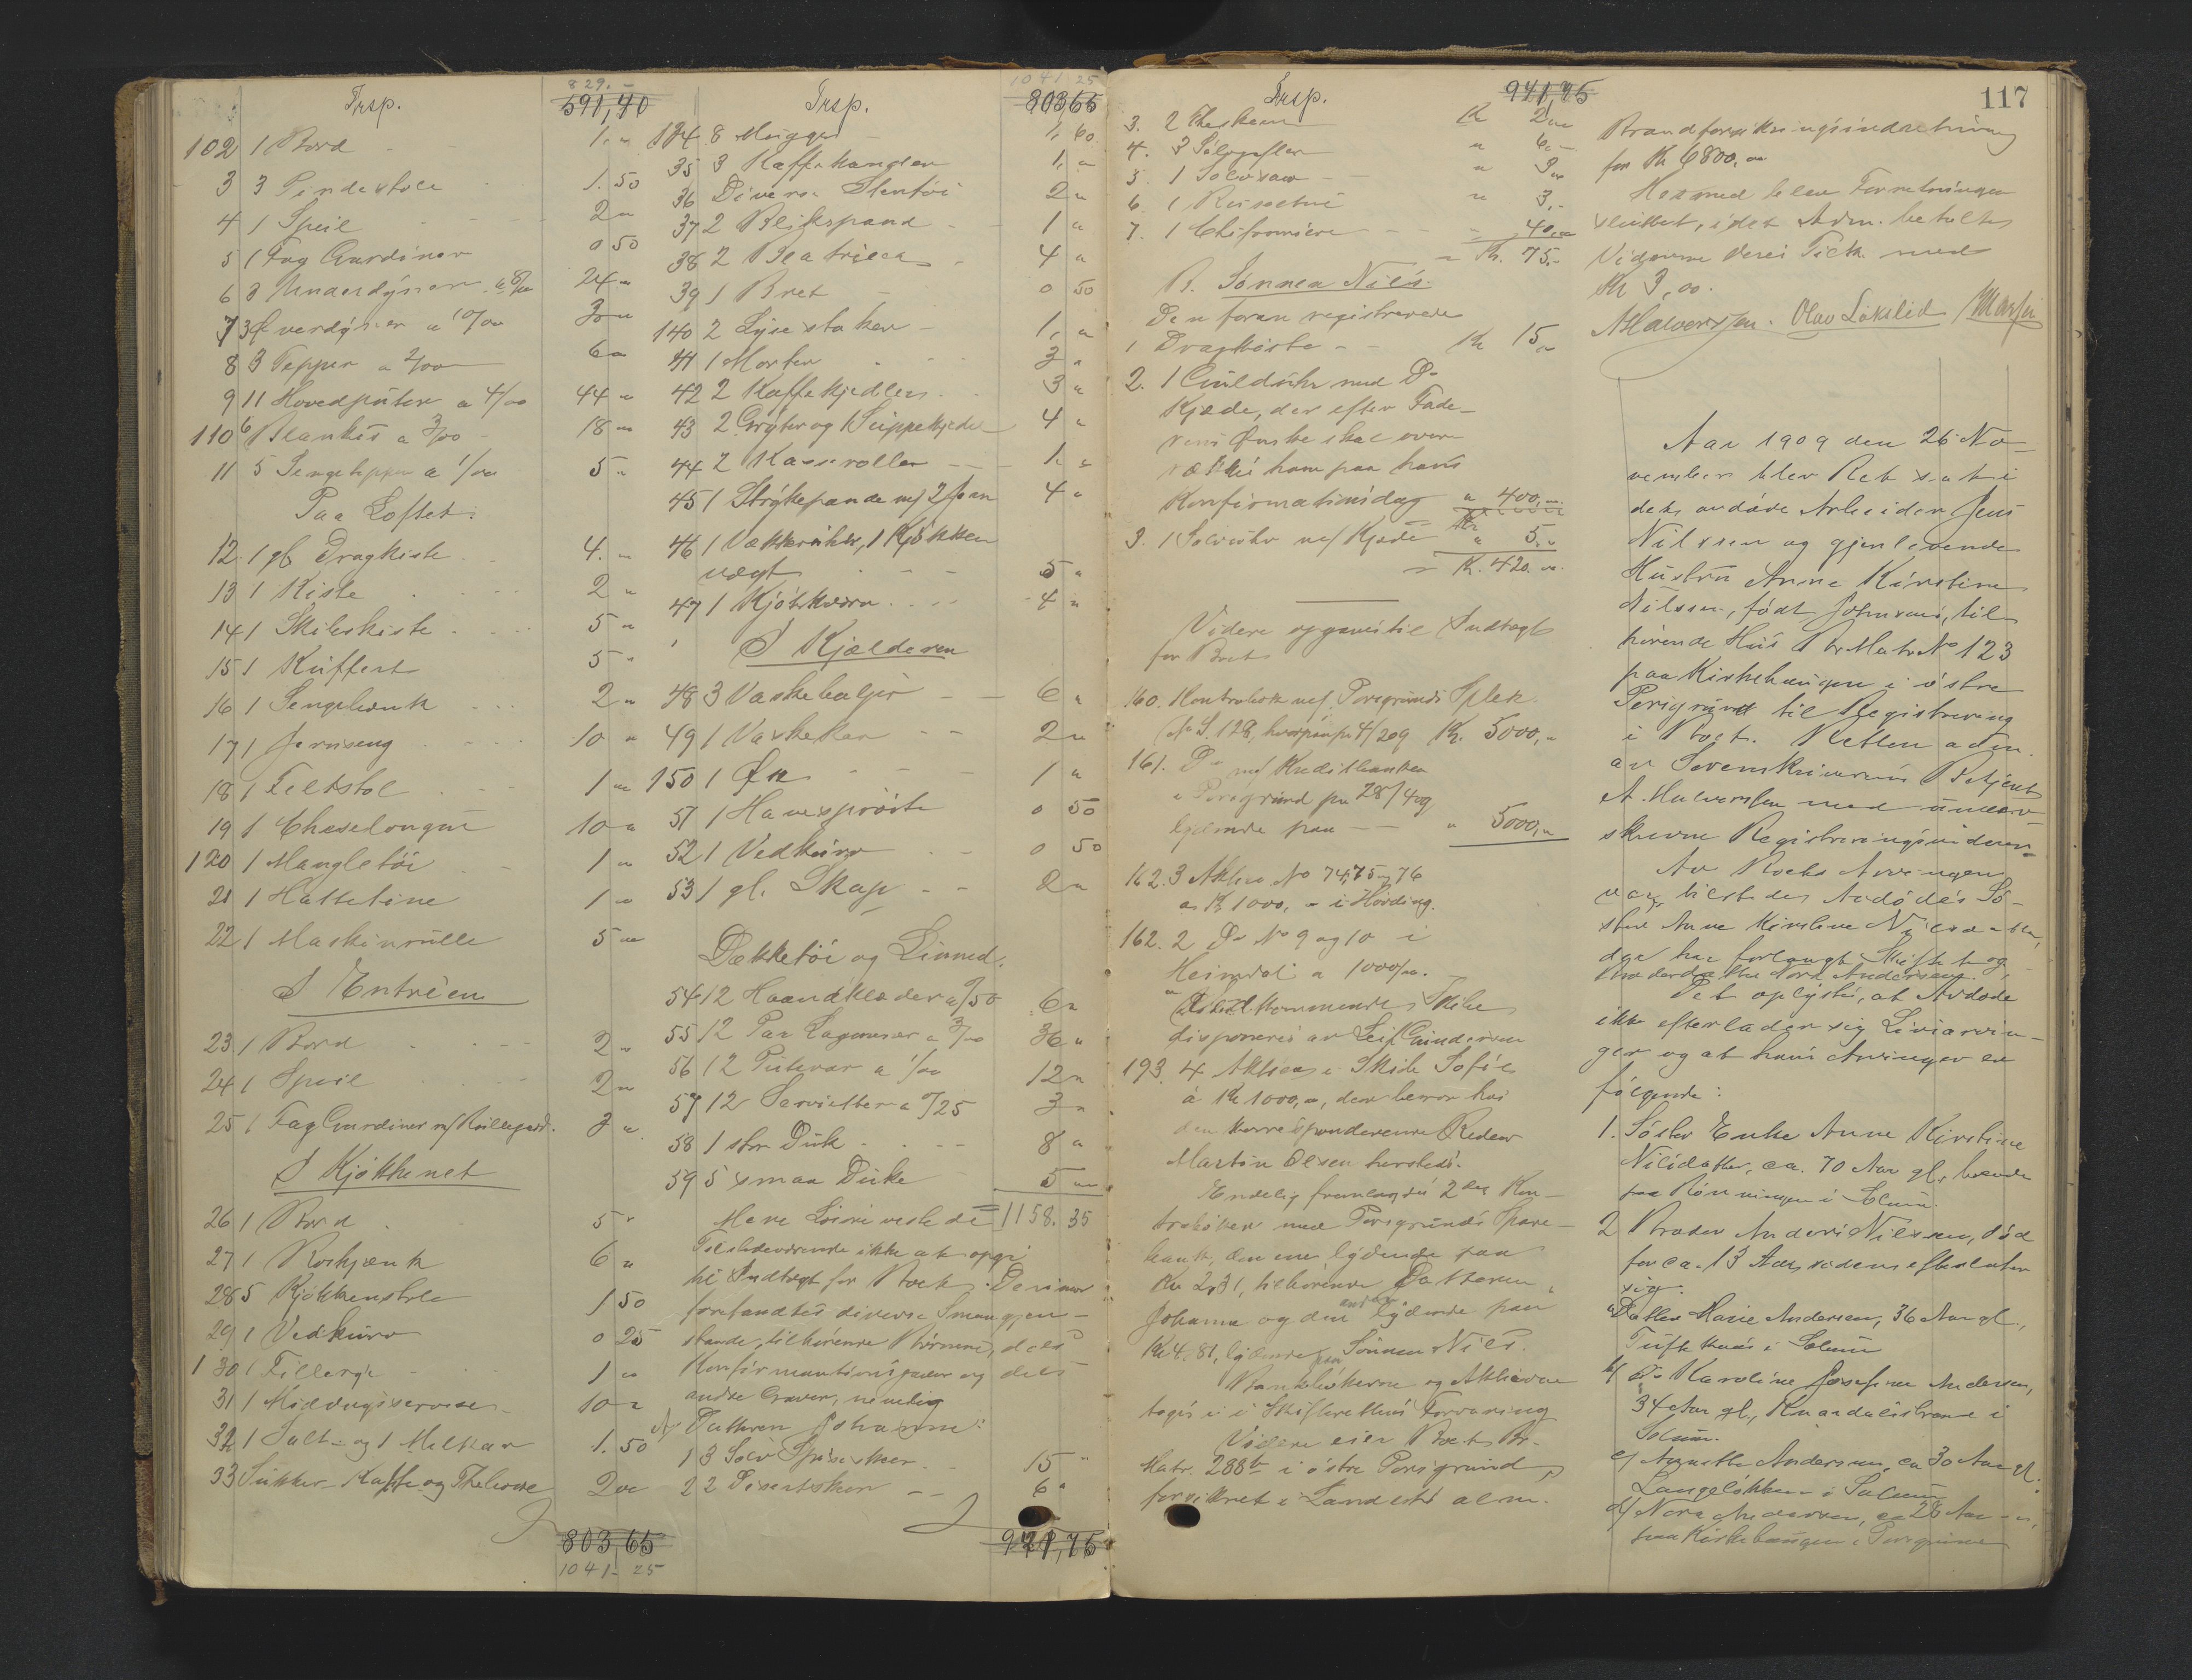 829.-
Trsp. 591,40
102 1 Bord 1.
3 3 Pindestole 1.50
4 1 Speil 2
5 1 Fag Gardiner 0 50
6 3 Underdyner a 8/00 24
7 3 Overdyner a 10/00 30
8 3 Tepper a 2/00 6
9 11 Hovedputer a 4/00 44
110 6 Blankets a 3/00 18
11 5 Sengetepper a 1/00 5
Paa Loftet.
12 1 gl Dragkiste 4.
13 1 Kiste 2
14 1 Skibskiste 5
15 1 Kuffert 5
16 1 Sengebenk 2
17 1 Jernseng 10
18 1 Feltstol 1
19 1 Cheselongue 10
120 1 Mangletøi 1
21 1 Hattetine 1
22 1 Maskinrulle 5
I Entréen
23 1 Bord 2
24 1 Speil 2
25 1 Fag Gardiner m/ Rullegard. 3
I Kjøkkenet
26 1 Bord 5
27 1 6
28 5 Kjøkkenstole 1 50
29 1 Vedkurv 0 25
130 1 Fillerye 1
31 1 Middagsservise 10
32 1 Salt- og 1 Melkar 1.50
33 Sukker- Kaffe og Thebokse 2
803,65
1041-25
1041 25
Trsp. 803 65
134 8 Mugger 1, 60
35 3 Kaffekander 1,
36 Diverse Stentøi 2
37 2 Blikspand 1
38 2 4
39 1 Bret 0 50
140 2 Lysestaker 1,
41 1 Morter 3
42 2 Kaffekjedler 3
43 2 Gryter og 1 Suppekjedel 4
44 2 Kasseroller 1.
45 1 Strykepande m/ 2 Jern 4
46 1 Vækkeruhr, 1 Kjøkken
vægt 5
47 1 Kjøtkværn 4
I Kjælderen
48 3 Vaskebaljer 6
49 1 Vaskekar 2
150 1 Øx 1
51 1 Havesprøite 0 50
52 1 Vedkurv 0 50
53 1 gl. Skap 2
Dækketøi og Linned.
54 12 Haandklæder a /50 6
55 12 Par Lagenser a 3/00 36
56 12 Putevar a 1/00 12
57 12 Servietter a /25 3
58 1 stor Duk 8
59 5 smaa Duke 5
Mere Løsøre vidste de 1158.35
Tilstedeværende ikke at opgi
til Indtægt for Boet. Desuden
forefandtes diverse Smaagjen-
stande, tilhørende Børnene, dels
Konfirmantionsgaver og dels
andre Gaver, nemlig
A) Datteren Johanne:
1 3 Sølv Spiseskeer 15
2 2 Desertskeer 6
941,75
117
Trsp. 941,75
3. 2 Theskeer Kr 2
4. 3 Sølvgafler " 6
5. 1 " 9
6. 1 " 3,-
7. 1 Chifroniere 40,
= Kr. 75.-
B. Sønnen Nils.
Den foran registrerede
1 Dragkiste Kr 15
2. 1 Gulduhr med Do
Kjæde, der efter Fade-
rens Ønske skal over-
rækkes ham paa hans
Konfirmationsdag " 400,
3. 1 Sølvuhr m/ Kjæde " 5.
= Kr. 420.
Videre opgaves til Indtægt
for Boet
160. Kontrabok m/ Porsgrunds Spbk.
No S. 128, hvorpaa pr 4/2 09 Kr. 5000,
161. Do m/ Kreditbanken
i Porsgrund pr 28/4 09
lydende paa " 5000,
162. 3 Aktier No 74, 75 og 76
a Kr 1000, i Hovding.
162. 2 Do No 9 og 10 i
Heimdal a 1000/00.
vedkommende Skibe
disponeres av Leif Gundersen
193. 4 Aktier i Skib Sofie
à Kr 1000, der beror hos
den korresponderende Reder
Martin Olsen hersteds.
Endelig fremlagdes 2de Kon-
trabøker med Porsgrunds Spare-
bank, den ene lydende paa
Kr 2,31, tilhørende Datteren
Johanne og den anden lydende paa
Kr 4.81, lydende paa Sønnen Nils.
Bankbøkerne og Aktierne
toges i Skifterettens Forvaring
Videre eier Boet Br.
Matr. 288b i østre Porsgrund,
forsikret i Landets alm.
Brandforsikringsindretning
for Kr 6800,
Hermed blev Forretningen
sluttet, idet Adm. betalte
Vidnerne deres Tilk. med
Kr 3,00.
AHalvorsen. Olav Løkslid
Aar 1909 den 26 No-
vember blev Ret sat i
det avdøde Arbeider Jens
Nilssen og gjenlevende
Hustru Anne Kirstine
Nilssen, født Johnsens, til-
hørende Hus Br Matr No 123
paa Kirkehaugen i østre
Porsgrund til Registrering
i Boet. Retten adm.
av Sorenskriverens Betjent
A. Halvorsen med under-
skrevne Registreringsvidner.
Av Boets Arvinger
var tilstede Avdødes Sø-
ster Anne Kirstine Nilsdatter,
der har forlangt Skifte og
Broderdatter Nora Andersen.
Det oplystes, at Avdøde
ikke efterlader sig Livsarvin-
ger og at hans Arvinger er
følgende:
1. Søster Enke Anne Kirstine
Nilsdatter, ca. 70 Aar gl., boende
paa Rønningen i Solum.
2 Broder Anders Nilssen, død
for ca. 13 Aar siden efterlater
sig:
a) Datter Marie Andersen, 36 Aar gl.,
Tuftenæs i Solum
b) do Karoline Josefine Andersen,
34 Aar gl., Knardalstrand i
Solum.
c) Anette Andersen, ca 30 Aar gl.
Langeløkken i Solum
d) Nora Andersen, ca 28 Aar
paa Kirkehaugen i Porsgrund